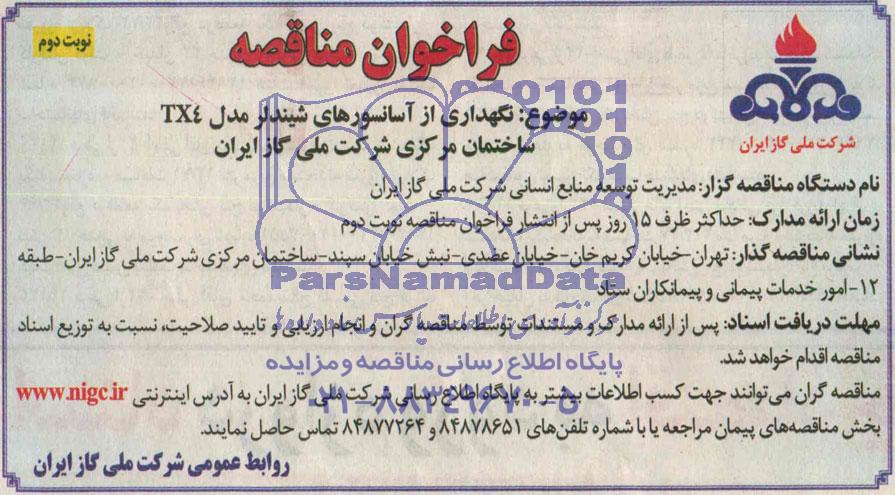 نوبت دوم
فراخوان مناقصه
شرکت ملی گاز ایران
موضوع: نگهداری از آسانسورهای شیندلر مدل TX٤
ساختمان مرکزی شرکت ملی گاز ایران
نام دستگاه مناقصه گزار: مدیریت توسعه منابع انسانی شرکت ملی گاز ایران
زمان ارائه مدارک: حداکثر ظرف ۱۵ روز پس از انتشار فراخوان مناقصه نوبت دوم
نشانی مناقصه گذار: تهران-خیابان کریم خان-خیابان عضدی-نبش خیابان سپند-ساختمان مرکزی شرکت ملی گاز ایران-طبقه
۱۲-امور خدمات پیمانی و پیمانکاران ستاد
مهلت دریافت اسناد: پس از ارائه مدارک و مستندات توسط مناقصه گران و انجام ارزیابی و تایید صلاحیت، نسبت به توزیع اسناد
مناقصه اقدام خواهد شد.
مناقصه گران می‌توانند جهت کسب اطلاعات بیشتر به پایگاه اطلاع رسانی شرکت ملی گاز ایران به آدرس اینترنتی www.nigc.ir
بخش مناقصه‌های پیمان مراجعه یا با شماره تلفن‌های ۸۴۸۷۸۶۵۱ و ۸۴۸۷۷۲۶۴ تماس حاصل نمایند.
روابط عمومی شرکت ملی گاز ایران
ParsNamadData
پایگاه اطلاع رسانی مناقصه و مزایده
۰۲۱-۸۸۳۴۹۶۷۰-۵